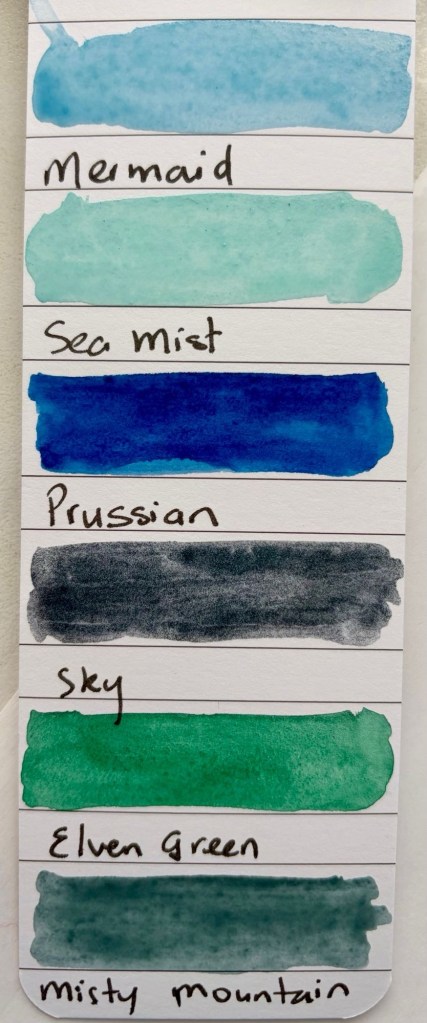 Mermaid
Sea Mist
Prussian
Sky
Elven Green
Misty Mountain